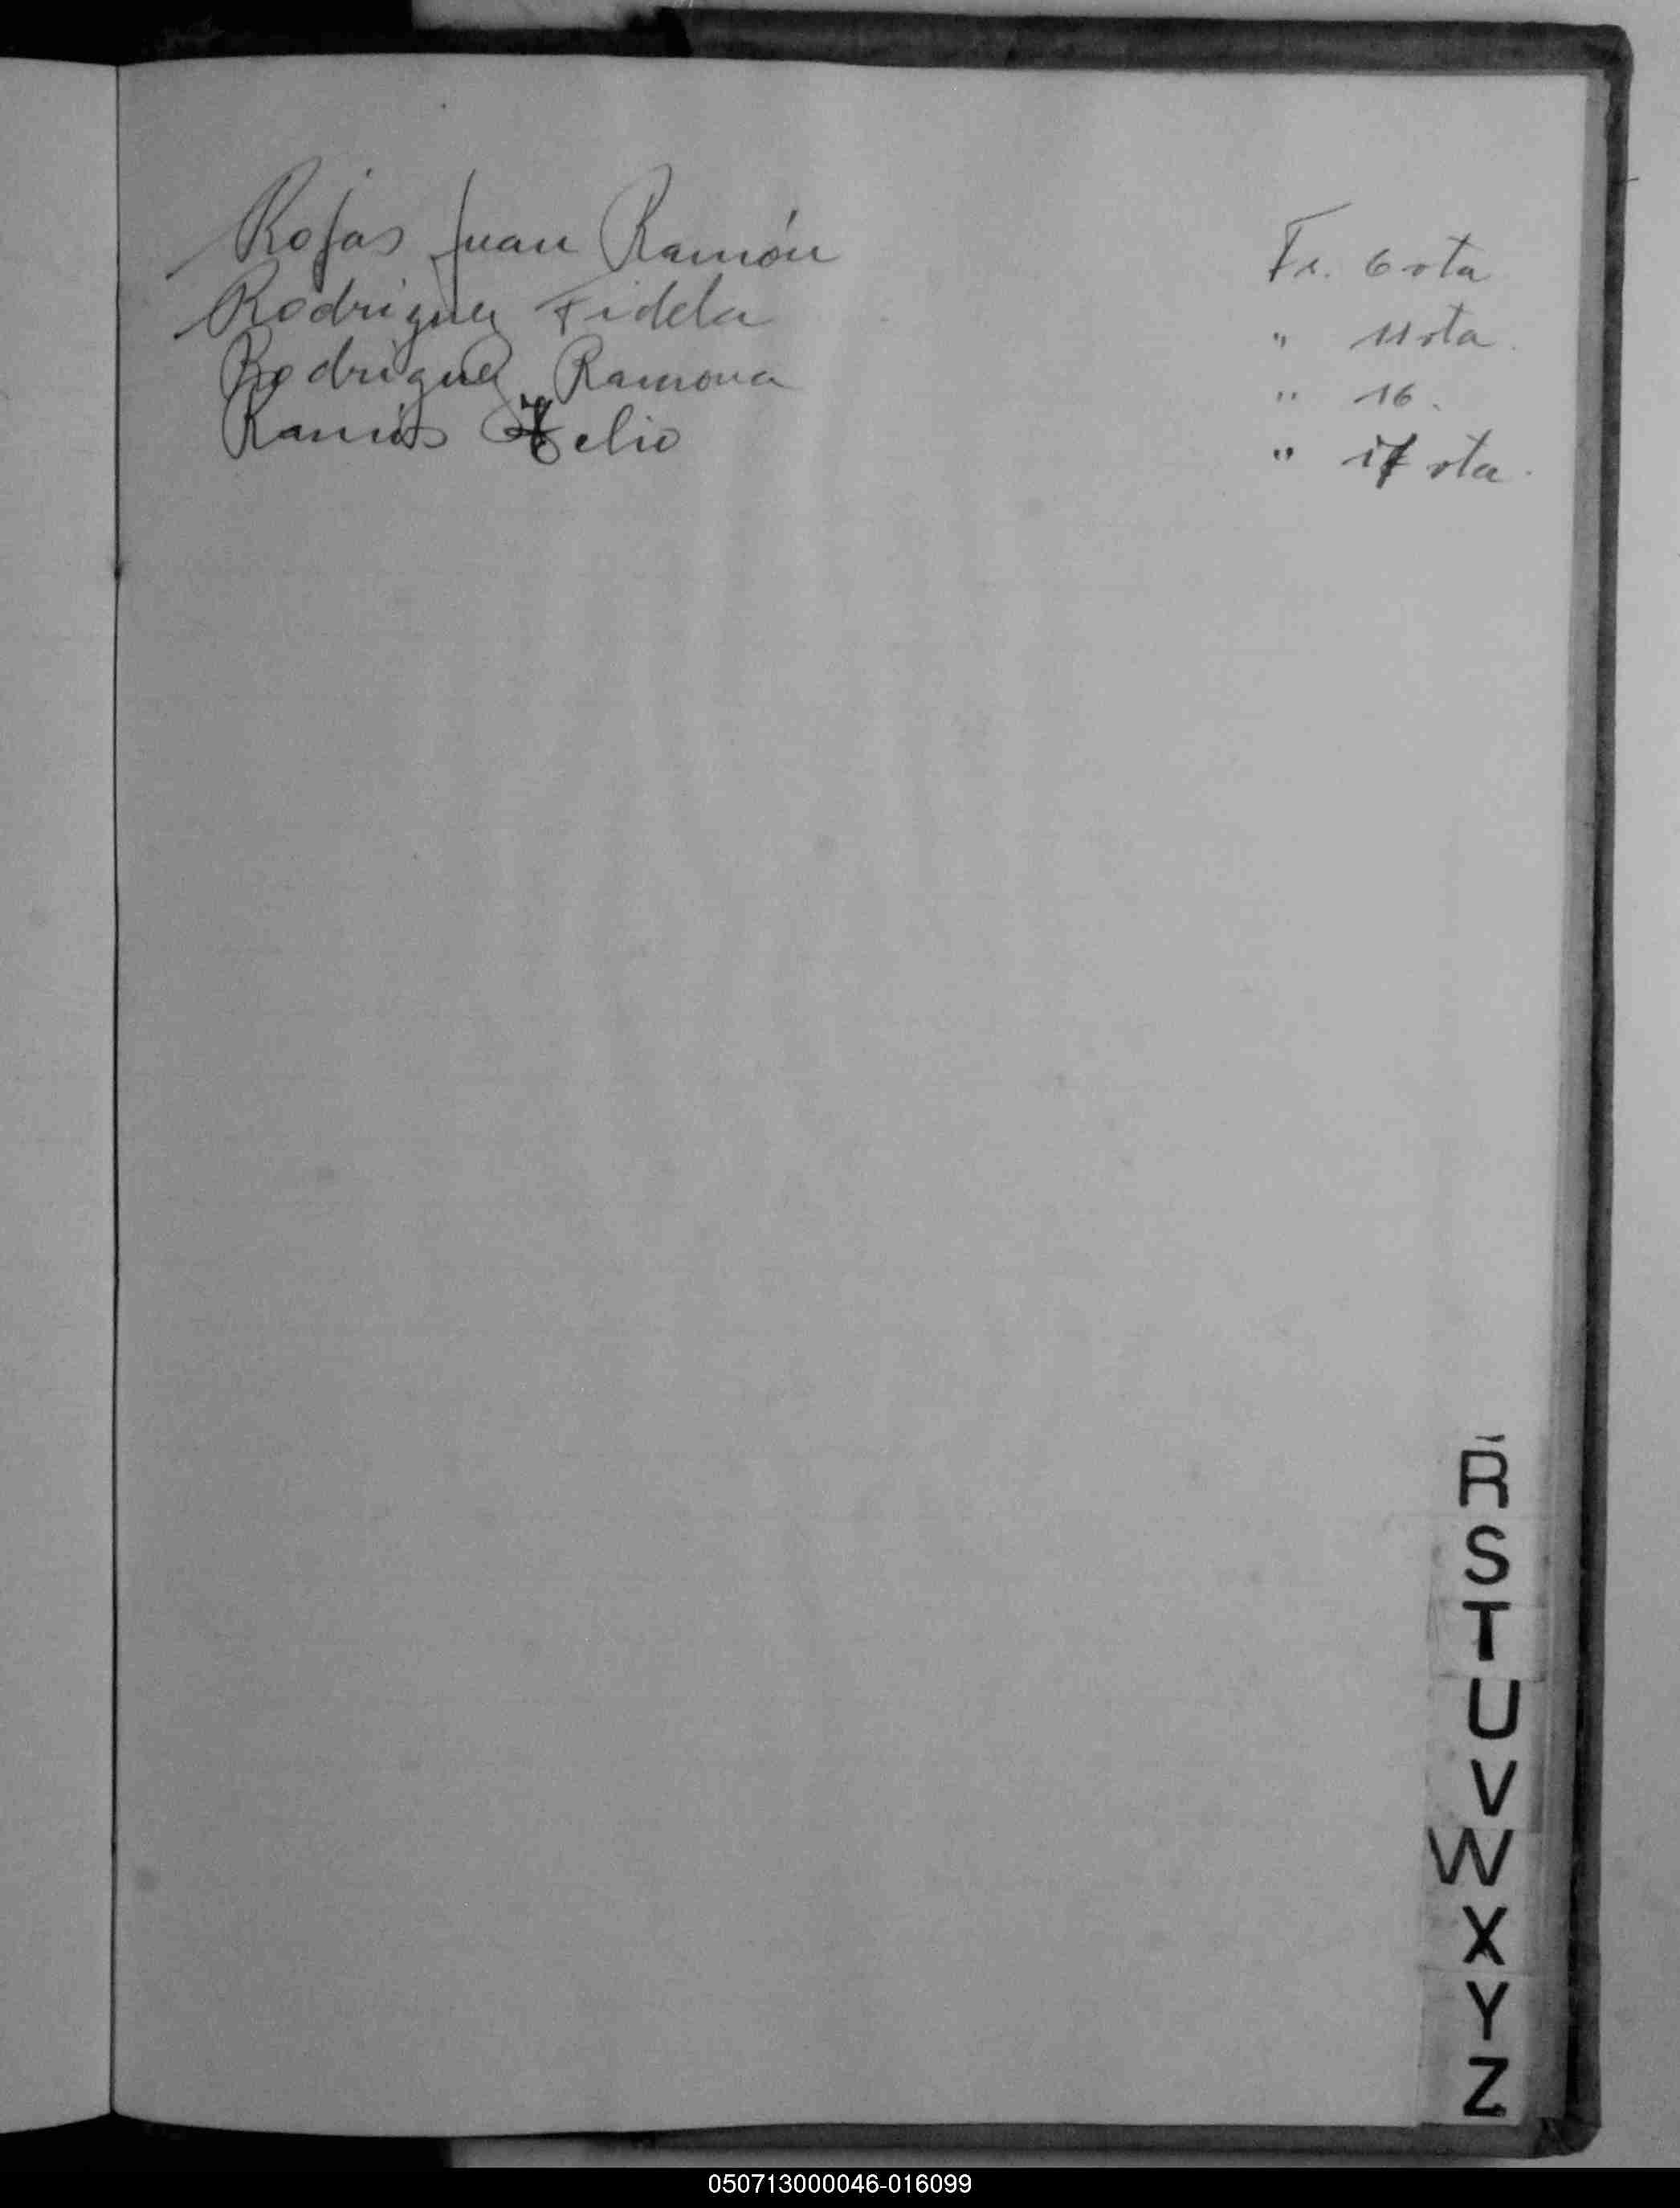 Rojas Juan Ramón Fs. 6 vta
Rodriguez Fidela " 11 vta.
Rodriguez Ramona " 16.
Ramos " 17 vta.
R
S
T
U
V
W
X
Y
Z
050713000046-016099